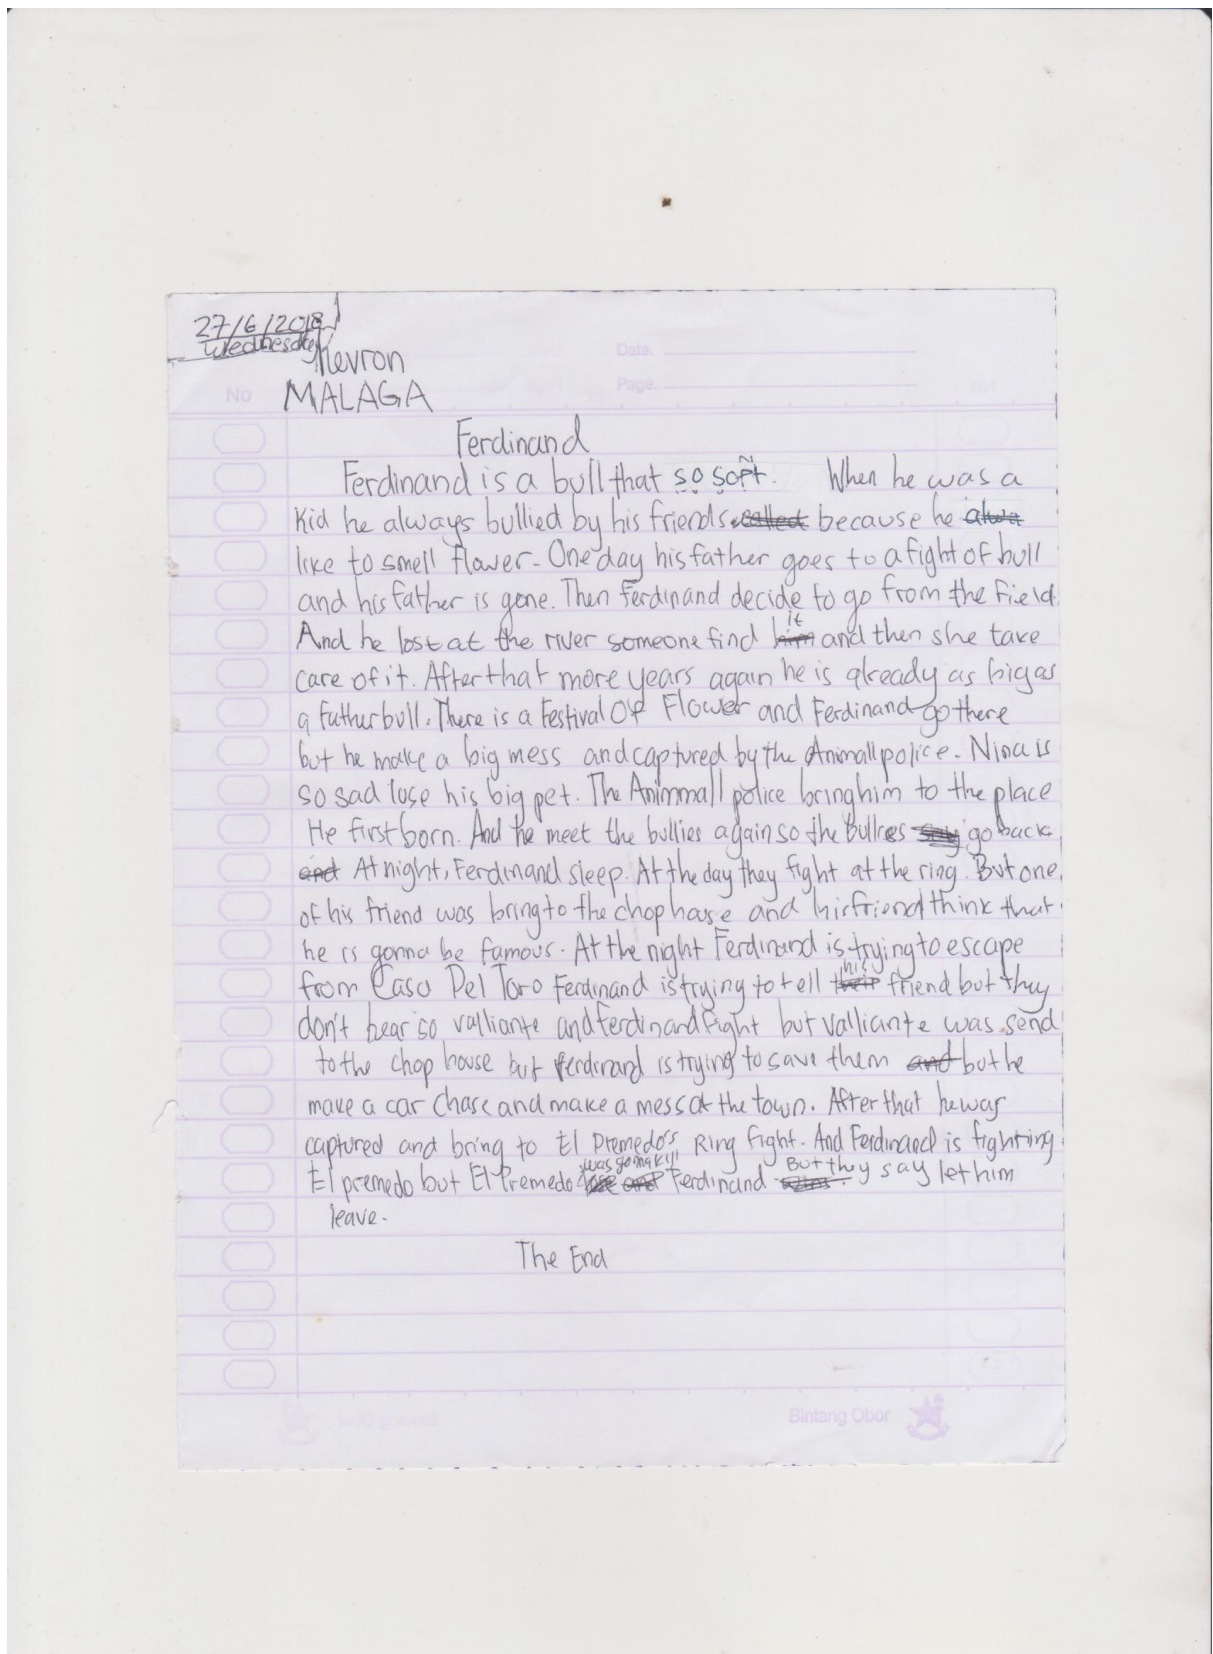 27/6/2018
Wednesday
Nevron
Date.
Page.
No
MALAGA
Ferdinand
Ferdinand is a bull that so soft. When he was a
Kid he always bullied by his friends. called because he alwa
like to smell flower. One day his father goes to a fight of bull
and his father is gone. Then Ferdinand decide to go from the field.
And he lost at the river someone find him it and then she take
care of it. After that more years again he is already as big as
a father bull. There is a Festival Of Flower and Ferdinand go there
but he make a big mess and captured by the Animall police. Nina is
so sad lose his big pet. The Animmall police bring him to the place
He first born. And he meet the bullies again so the bullies say go back
and At night, Ferdinand sleep. At the day they fight at the ring. But one
of his friend was bring to the chop house and his friend think that
he is gonna be famous. At the night Ferdinand is trying to escape
from Casa Del Toro Ferdinand is trying to tell their his friend but they
don't hear so valliante and ferdinand fight but valliante was send
to the chop house but ferdinand is trying to save them and but he
make a car chase and make a mess at the town. After that he was
captured and bring to El Premedo's Ring fight. And Ferdinand is fighting
El premedo but El Premedo was gonna kill Ferdinand But they say let him
leave.
The End
Bintang Obor